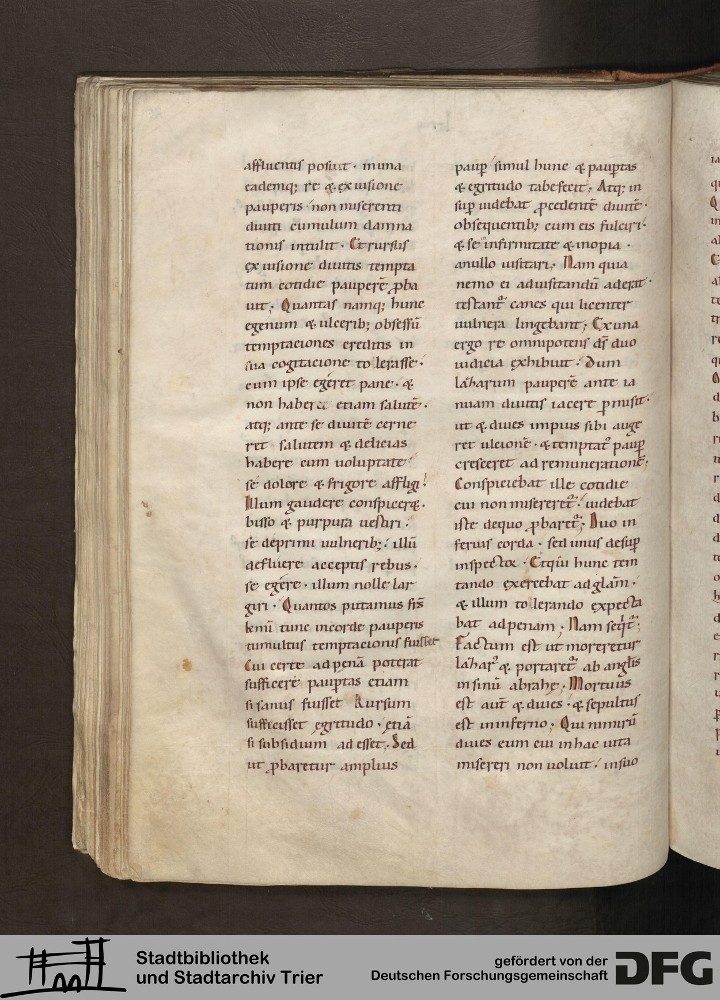 affluentis posuit · in una
eademq; re & ex uisione
pauperis · non miserenti
diuiti cumulum damna
tionis intulit · Et rursus
ex uisione diuitis tempta
tum cotidie pauperē ꝓba
uit; Quantas namq; hunc
egenum & ulcerib; obsessū
temptaciones creditis in
sua cogitacione tolerasse ·
cum ipse egeret pane · &
non haberet etiam salutē ·
atq; ante se diuitē cerne
ret salutem & delicias
habere cum uoluptate ·
se dolore & frigore affligi ·
Illum gaudere conspiceret ·
bisso & purpura uestiri ·
se deprimi uulnerib; · illū
defluere acceptis rebus ·
se egere · illum nolle lar
giri · Quantos putamus frs̄
kmī tunc in corde pauperis
tumultus temptacionis fuisset
Cui certe ad penā poterat
sufficere paup̄tas etiam
si sanus fuisset Rursum
suffecisset egritudo · etiā
si subsidium adesset · Sed
ut ꝓbaretur amplius
paup̄ simul hunc & paup̄tas
& egritudo tabefecit; Atq; in
sup̄ uidebat ꝓcedentē diuitē ·
obsequentib; cum eis fulciri ·
& se in infirmitate & inopia ·
a nullo uisitari; Nam quia
nemo ei ad uisitandū aderat ·
testant᷑ canes qui licenter
uulnera lingebant; Ex una
ergo re omnipotens ds̄ duo
iudicia exhibuit · Dum
lazarum pauperē ante ia
nuam diuitis iacere p̄misit ·
ut & diues impius sibi auge
ret ulcionē · & temptat᷑ paup̄
cresceret ad remunerationē;
Conspiciebat ille cotidie
cui non misereret᷑ · uidebat
iste de quo ꝓbaret᷑; Duo in
ferius corda · sed unus desup̄
inspector · Et qui hunc tem
tando exercebat ad glām ·
& illum tolerando expecta
bat ad penam; Nam seqit᷑;
Factum est ut moreretur
lazar᷒ & portaret᷑ ab anglis
in sinū abrahe · Mortuus
est aut̄ & diues · & sepultus
est in inferno; Qui nimirū
diues eum cui in hac uita
misereri non uoluit · in suo
Stadtbibliothek
und Stadtarchiv Trier
gefördert von der
Deutschen Forschungsgemeinschaft
DFG